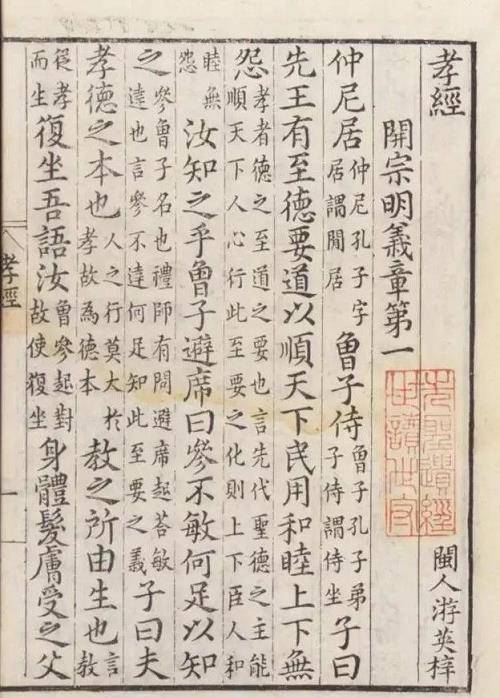 孝經 先聖遺經 閩人游英梓
開宗明義童第一
仲尼居仲尼孔子字居謂閒居魯子侍魯子孔子弟子侍謂侍坐子曰
先王有至德要道以順天下民用和睦上下無
怨孝者德之至道之要也言先代聖德之主能順天下人心行此至要之化則上下臣人和
睦無怨汝知之乎魯子避席曰參不敏何足以知
之參魯子名也禮師有問避席起荅敏達也言參不達何足知此至要之義子曰夫
孝德之本也人之行莫大於孝故為德本教之所由生也言教
從孝而生復坐吾語汝魯參起對故使復坐身體髮膚受之父
孝經 一